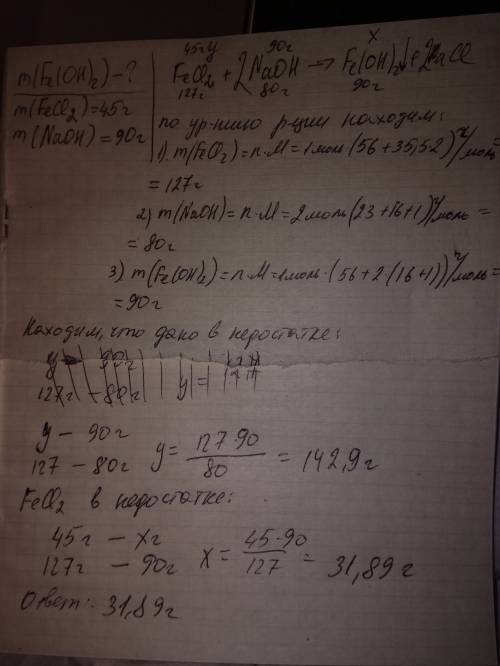 m(Fe(OH)₂) - ?
m(FeCl₂) = 45г
m(NaOH) = 90г
45г y 90г x
FeCl₂ + 2NaOH → Fe(OH)₂↓ + 2NaCl
127г 80г 90г
по ур-нию р-ции находим:
1). m(FeCl₂) = n·M = 1моль (56 + 35,5·2) г/моль =
= 127г
2) m(NaOH) = n·M = 2моль (23 + 16 + 1) г/моль =
= 80г
3) m(Fe(OH)₂) = n·M = 1моль · (56 + 2·(16 + 1)) г/моль =
= 90г
Находим, что дано в недостатке:
y - 90г
127г - 80г y =
y - 90г
127 - 80г y = 127·90 / 80 = 142,9г
FeCl₂ в недостатке:
45г - xг
127г - 90г x = 45·90 / 127 = 31,89г
Ответ: 31,89г